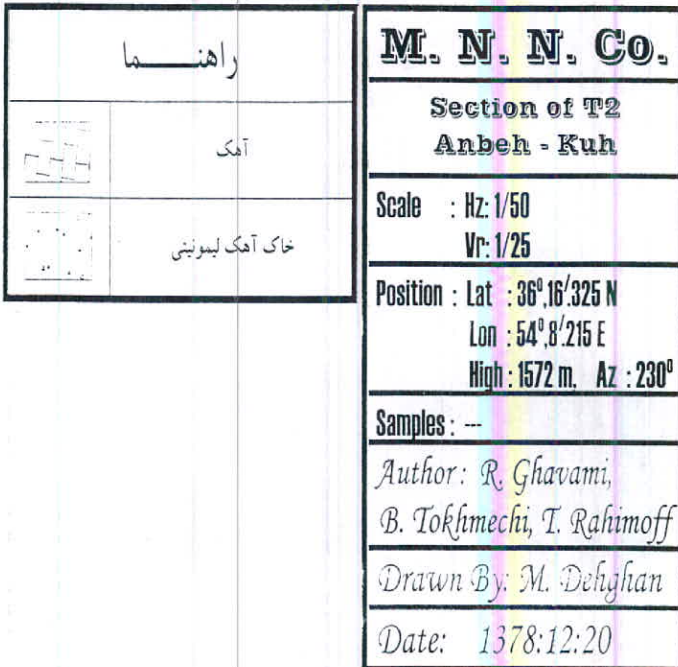 راهنما
آهک
خاک آهک لیمونیتی
M. N. N. Co.
Section of T2
Anbeh - Kuh
Scale : Hz: 1/50
Vr: 1/25
Position : Lat : 36⁰,16′.325 N
Lon : 54⁰,8′.215 E
High : 1572 m, Az : 230⁰
Samples : ---
Author: R. Ghavami,
B. Tokhmechi, T. Rahimoff
Drawn By: M. Dehghan
Date: 1378:12:20